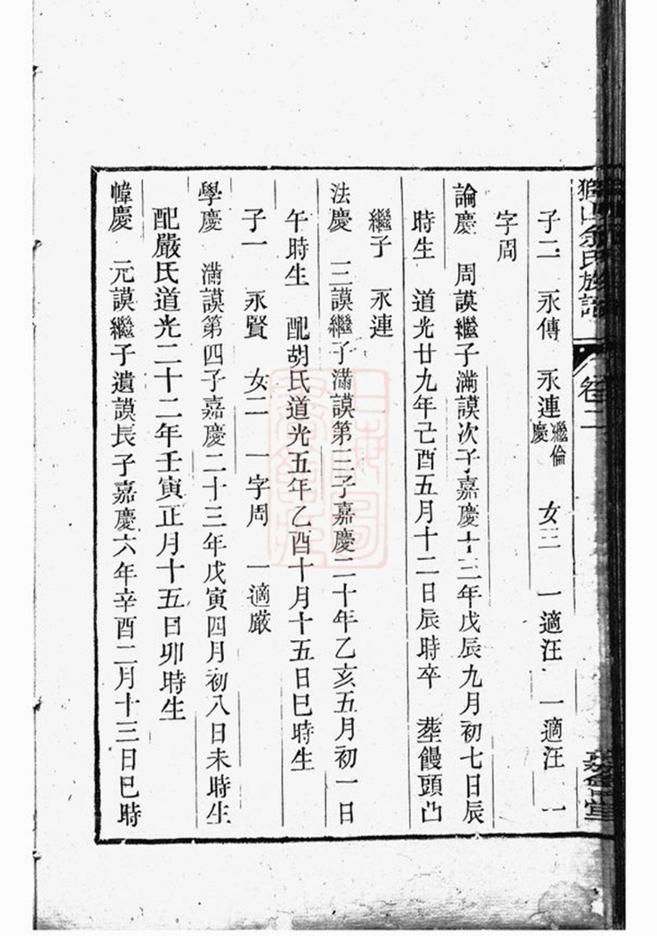 山余氏族譜
卷二
子二 永傳 永連繼倫慶 女三 一適汪 一適汪 一
字周
論慶 周謨繼子滿謨次子嘉慶十三年戊辰九月初七日辰
時生 道光廿九年己酉五月十二日辰時卒 塟饅頭凸
繼子 永連
法慶 三謨繼子滿謨第三子嘉慶二十年乙亥五月初一日
午時生 配胡氏道光五年乙酉十月十五日巳時生
子一 永賢 女二 一字周 一適嚴
學慶 滿謨第四子嘉慶二十三年戊寅四月初八日未時生
配嚴氏道光二十二年壬寅正月十五日卯時生
幃慶 元謨繼子遺謨長子嘉慶六年辛酉二月十三日巳時